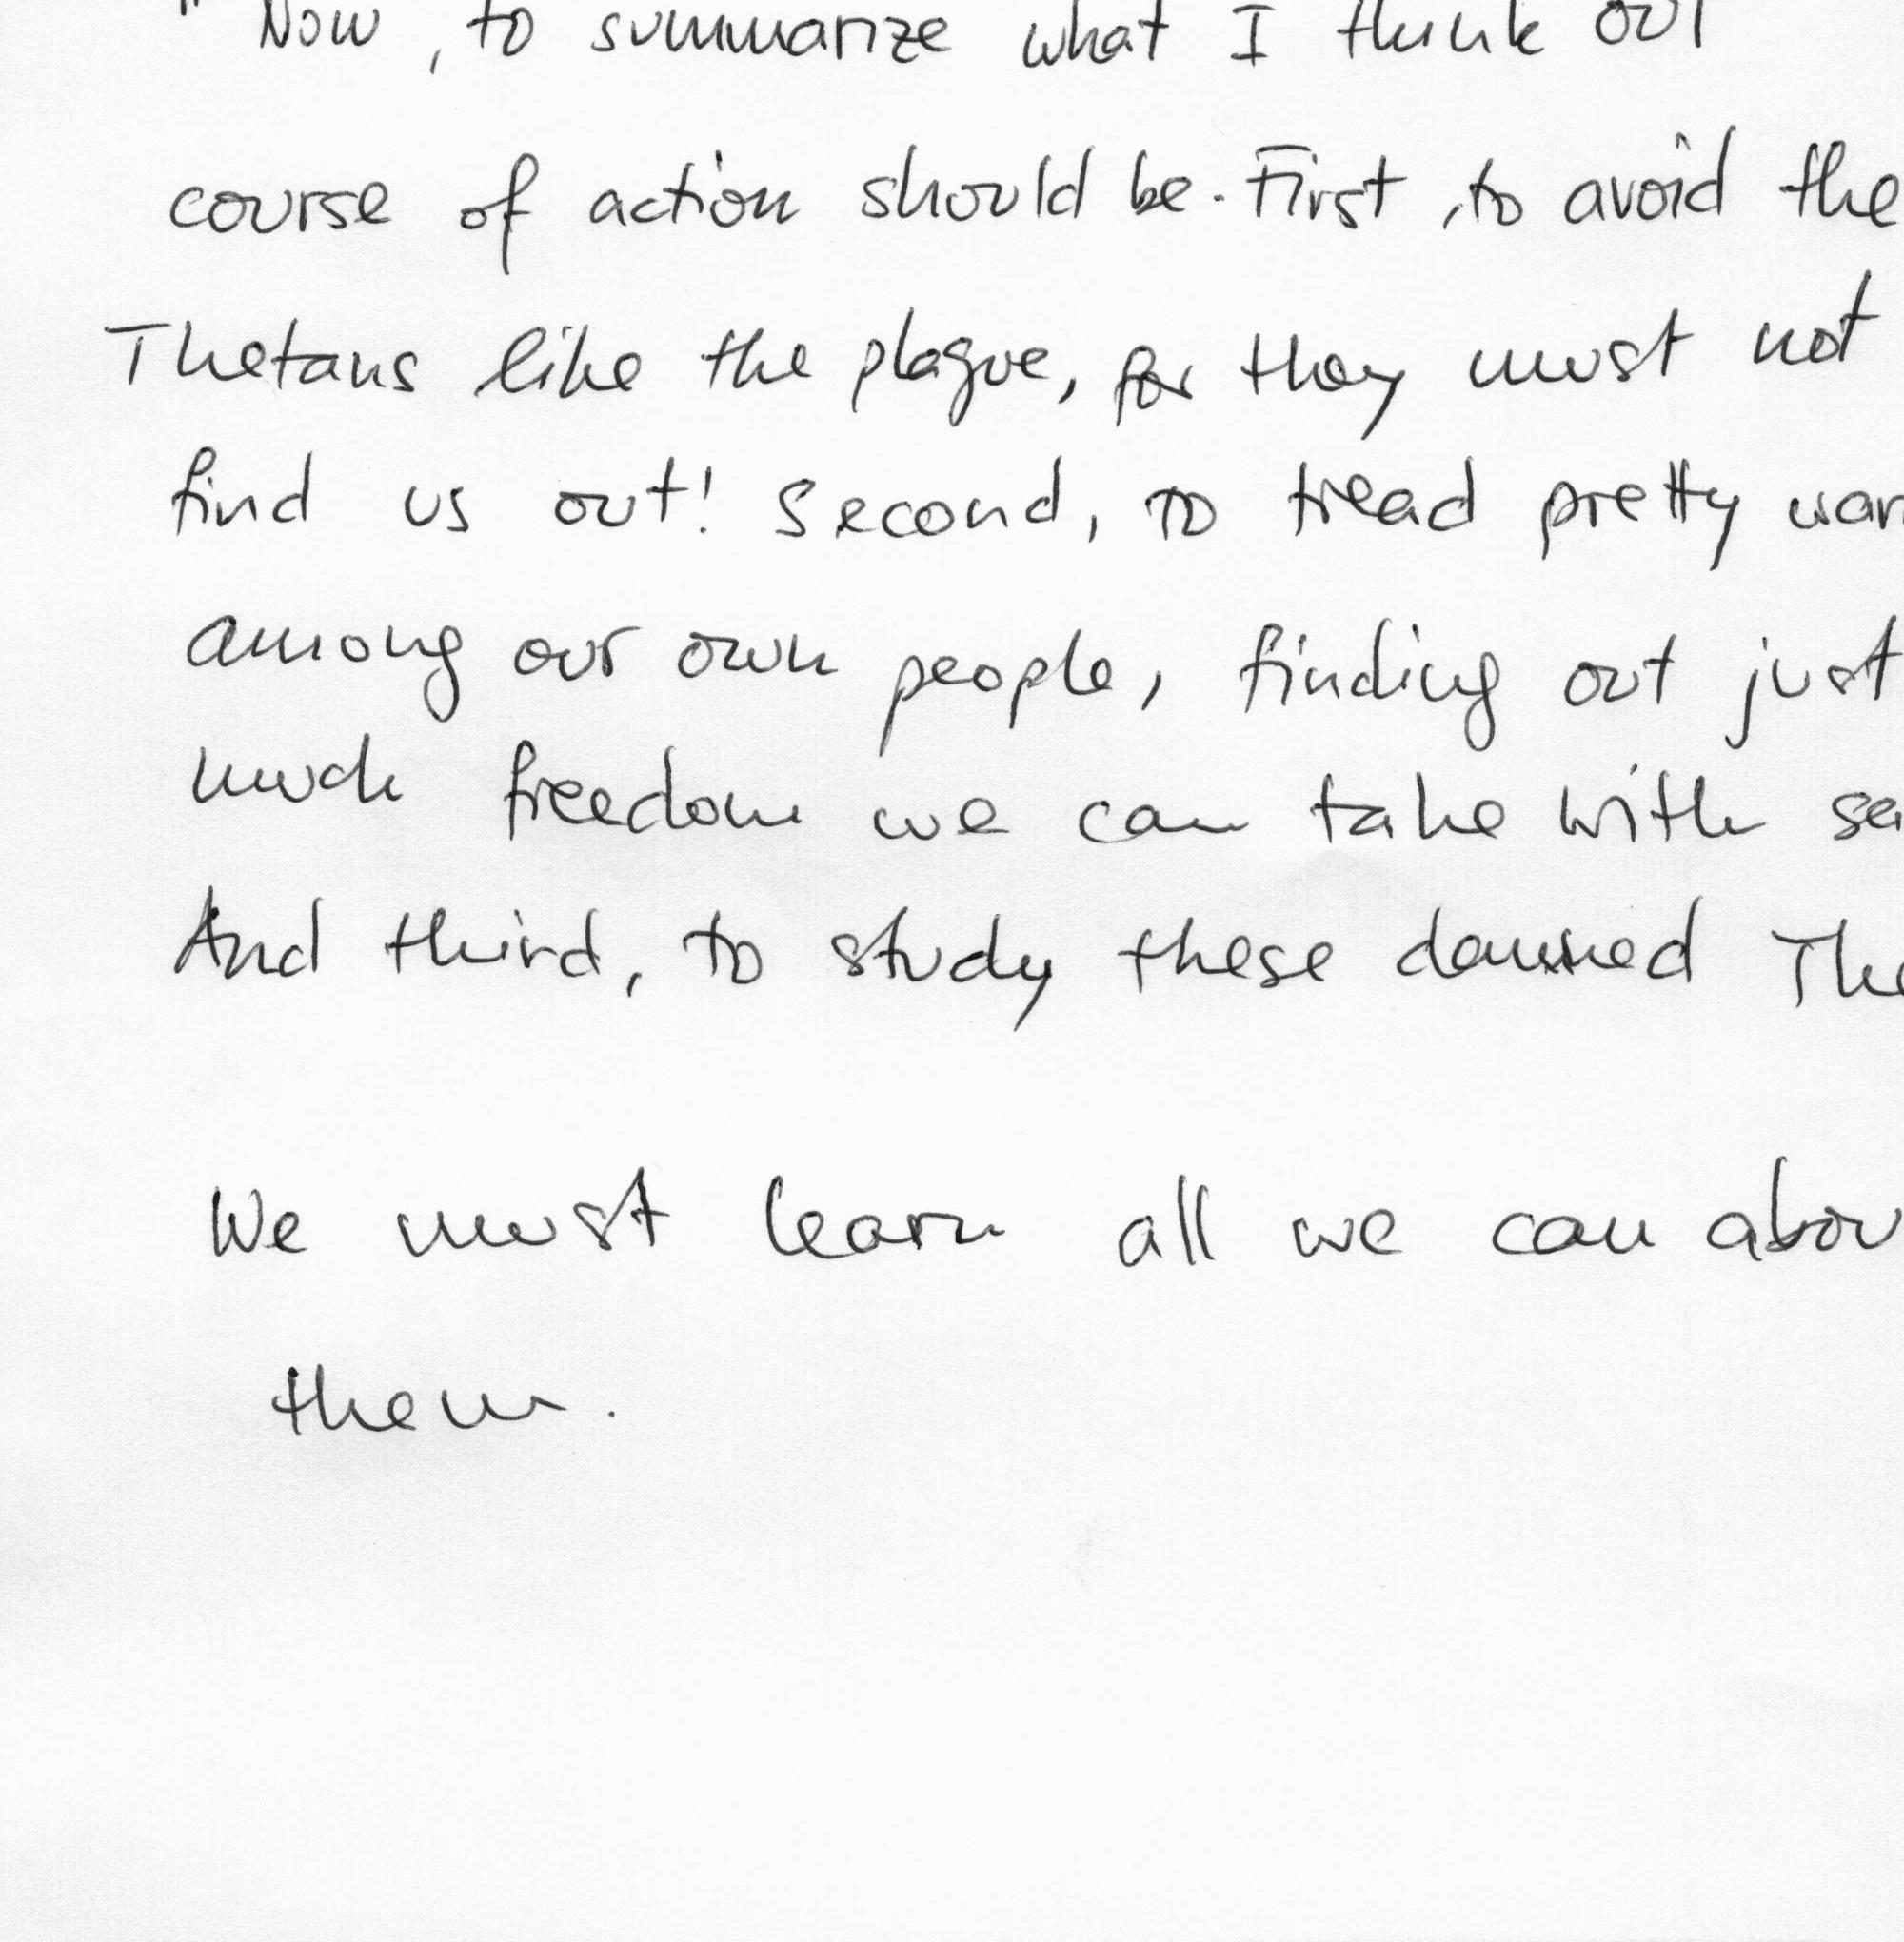 " Now, to summarize what I think our
course of action should be. First, to avoid the
Thetans like the plague, for they must not
find us out! Second, to tread pretty
among our own people, finding out just
much freedom we can take with
And third, to study these damned
We must learn all we can
them.